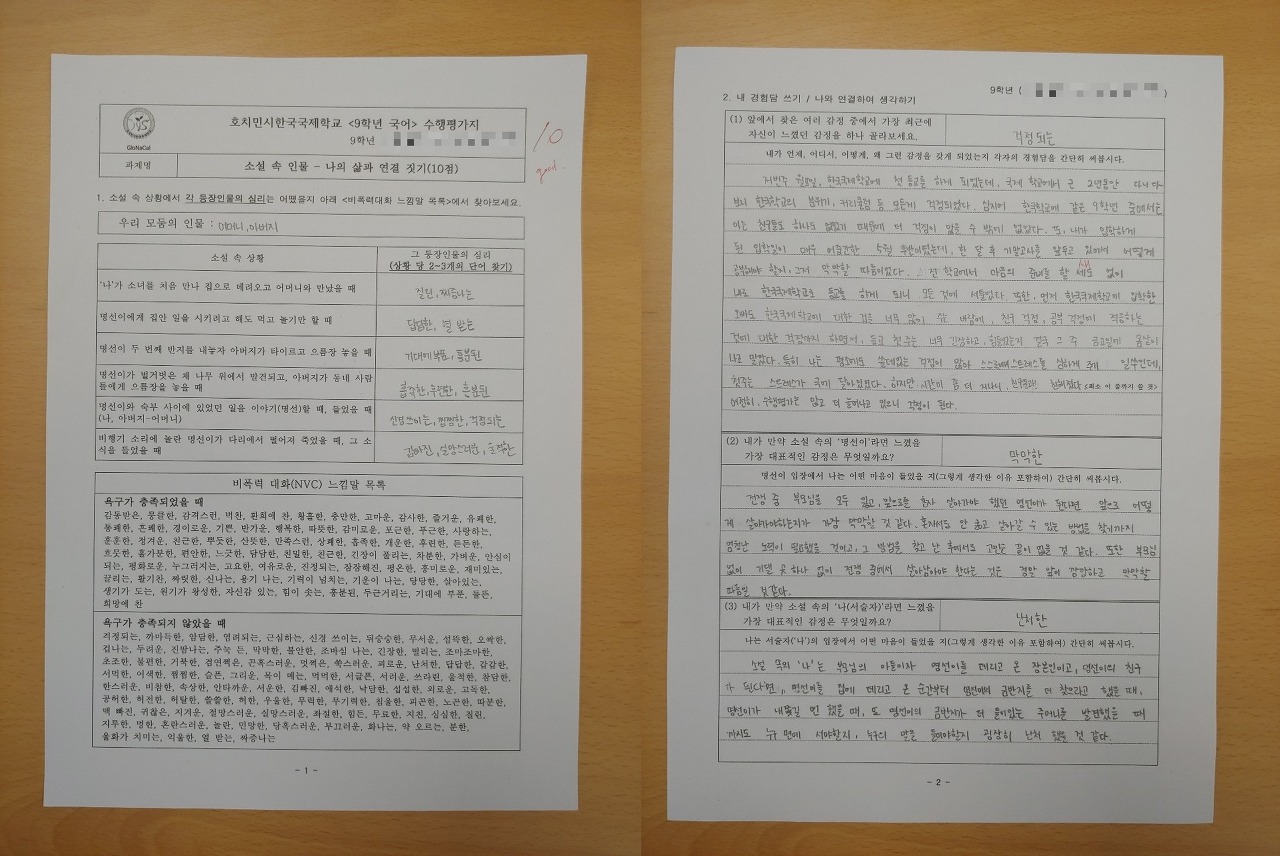 GloNaCal
호치민시한국국제학교 <9학년 국어> 수행평가지
9학년
10
good.
과제명
소설 속 인물 - 나의 삶과 연결 짓기(10점)
1. 소설 속 상황에서 각 등장인물의 심리는 어땠을지 아래 <비폭력대화 느낌말 목록>에서 찾아보세요.
우리 모둠의 인물 : 어머니, 아버지
소설 속 상황
그 등장인물의 심리
(상황 당 2~3개의 단어 찾기)
'나'가 소녀를 처음 만나 집으로 데려오고 어머니와 만났을 때
질린, 짜증나는
명선이에게 집안 일을 시키려고 해도 먹고 놀기만 할 때
답답한, 열 받는
명선이 두 번째 반지를 내놓자 아버지가 타이르고 으름장 놓을 때
기대에 부푼, 흥분된
명선이가 벌거벗은 채 나무 위에서 발견되고, 아버지가 동네 사람
들에게 으름장을 놓을 때
흥분된
명선이와 숙부 사이에 있었던 일을 이야기(명선)할 때, 들었을 때
(나, 아버지-어머니)
신경 쓰이는, 찜찜한, 걱정되는
비행기 소리에 놀란 명선이가 다리에서 떨어져 죽었을 때, 그 소
식을 들었을 때
김빠진, 실망스러운,
비폭력 대화(NVC) 느낌말 목록
욕구가 충족되었을 때
감동받은, 뭉클한, 감격스런, 벅찬, 환희에 찬, 황홀한, 충만한, 고마운, 감사한, 즐거운, 유쾌한,
통쾌한, 흔쾌한, 경이로운, 기쁜, 반가운, 행복한, 따뜻한, 감미로운, 포근한, 푸근한, 사랑하는,
훈훈한, 정겨운, 친근한, 뿌듯한, 산뜻한, 만족스런, 상쾌한, 흡족한, 개운한, 후련한, 든든한,
흐뭇한, 홀가분한, 편안한, 느긋한, 담담한, 친밀한, 친근한, 긴장이 풀리는, 차분한, 가벼운, 안심이
되는, 평화로운, 누그러지는, 고요한, 여유로운, 진정되는, 잠잠해진, 평온한, 흥미로운, 재미있는,
끌리는, 활기찬, 짜릿한, 신나는, 용기 나는, 기력이 넘치는, 기운이 나는, 당당한, 살아있는,
생기가 도는, 원기가 왕성한, 자신감 있는, 힘이 솟는, 흥분된, 두근거리는, 기대에 부푼, 들뜬,
희망에 찬
욕구가 충족되지 않았을 때
걱정되는, 까마득한, 암담한, 염려되는, 근심하는, 신경 쓰이는, 뒤숭숭한, 무서운, 섬뜩한, 오싹한,
겁나는, 두려운, 진땀나는, 주눅 든, 막막한, 불안한, 조바심 나는, 긴장한, 떨리는, 조마조마한,
초조한, 불편한, 거북한, 겸연쩍은, 곤혹스러운, 멋쩍은, 쑥스러운, 괴로운, 난처한, 답답한, 갑갑한,
서먹한, 어색한, 찜찜한, 슬픈, 그리운, 목이 메는, 먹먹한, 서글픈, 서러운, 쓰라린, 울적한, 참담한,
한스러운, 비참한, 속상한, 안타까운, 서운한, 김빠진, 애석한, 낙담한, 섭섭한, 외로운, 고독한,
공허한, 허전한, 허탈한, 쓸쓸한, 허한, 우울한, 무력한, 무기력한, 침울한, 피곤한, 노곤한, 따분한,
맥 빠진, 귀찮은, 지겨운, 절망스러운, 실망스러운, 좌절한, 힘든, 무료한, 지친, 심심한, 질린,
지루한, 멍한, 혼란스러운, 놀란, 민망한, 당혹스러운, 부끄러운, 화나는, 약 오르는, 분한,
울화가 치미는, 억울한, 열 받는, 짜증나는
- 1 -
9학년 ( )
2. 내 경험담 쓰기 / 나와 연결하여 생각하기
(1) 앞에서 찾은 여러 감정 중에서 가장 최근에
자신이 느꼈던 감정을 하나 골라보세요.
걱정되는
내가 언제, 어디서, 어떻게, 왜 그런 감정을 갖게 되었는지 각자의 경험담을 간단히 써봅시다.
저번주 월요일, 한국국제학교에 첫 등교를 하게 되었는데, 국제 학교에서 근 2년동안 다니다
보니 한국학교의 분위기, 커리큘럼 등 모든게 걱정되었다. 심지어 한국학교에 같은 9학년 중에서는
아는 친구들도 하나도 없었기 때문에 더 걱정이 많을 수 밖에 없었다. 또, 내가 입학하게
된 입학일이 매우 어중간한 5월 중반이었는데, 한 달 후 기말고사를 앞두고 있어서 어떻게
공부해야 할지, 그저 막막할 따름이었다. 전 학교에서 마음의 준비를 할 새도 없이
바로 한국국제학교로 등교를 하게 되니 모든 것에 서툴렀다. 또한, 먼저 한국국제학교에 입학한
오빠도 한국국제학교에 대한 것을 너무 많이 내게에, 친구 걱정, 공부 걱정에 적응하는
것에 대한 걱정까지 하면서, 등교 첫 주는 너무 긴장하고, 힘들었는지 결국 그 주 금요일에 몸살이
나고 말았다. 특히 나는 평소에도 쓸데없는 걱정이 많아 스스로에게 스트레스를 심하게 주기 일쑤인데,
첫주는 스트레스가 극에 달하였었다. 하지만 시간이 좀 더 지나니, 친구들과는 친해졌다
<최소 이 줄까지 쓸 것>
여전히, 수행평가는 많고 더 늘어나고 있으니 걱정이 된다.
(2) 내가 만약 소설 속의 '명선이'라면 느꼈을
가장 대표적인 감정은 무엇일까요?
막막한
명선이 입장에서 나는 어떤 마음이 들었을 지(그렇게 생각한 이유 포함하여) 간단히 써봅시다.
전쟁 중 부모님을 모두 잃고, 앞으로를 혼자 살아가야 했던 명선이가 된다면 앞으로 어떻
게 살아가야하는지가 가장 막막할 것 같다. 혼자서도 안 굶고 살아갈 수 있는 방법을 찾기까지
엄청난 노력이 필요했을 것이고, 그 방법을 찾고 난 후에서도 고민은 끝이 없을 것 같다. 또한 부모님
없이 기댈 곳 하나 없이 전쟁 중에서 살아남아야 한다는 것은 정말 앞이 깜깜하고 막막할
따름일 것 같다.
(3) 내가 만약 소설 속의 '나(서술자)'라면 느꼈을
가장 대표적인 감정은 무엇일까요?
난처한
나는 서술자('나')의 입장에서 어떤 마음이 들었을 지(그렇게 생각한 이유 포함하여) 간단히 써봅시다.
소설 속의 '나'는 부모님의 아들이자 명선이를 데리고 온 장본인이고, 명선이의 친구
가 된다면, 명선이를 집에 데리고 온 순간부터 명선이의 금반지를 더 찾으라고 했을 때,
명선이가 내쫓길 뻔 했을 때, 또 명선이의 금반지가 더 들어있는 주머니를 발견했을 때
까지도 누구 편에 서야할지, 누구의 말을 들어야할지 굉장히 난처 했을 것 같다.
- 2 -